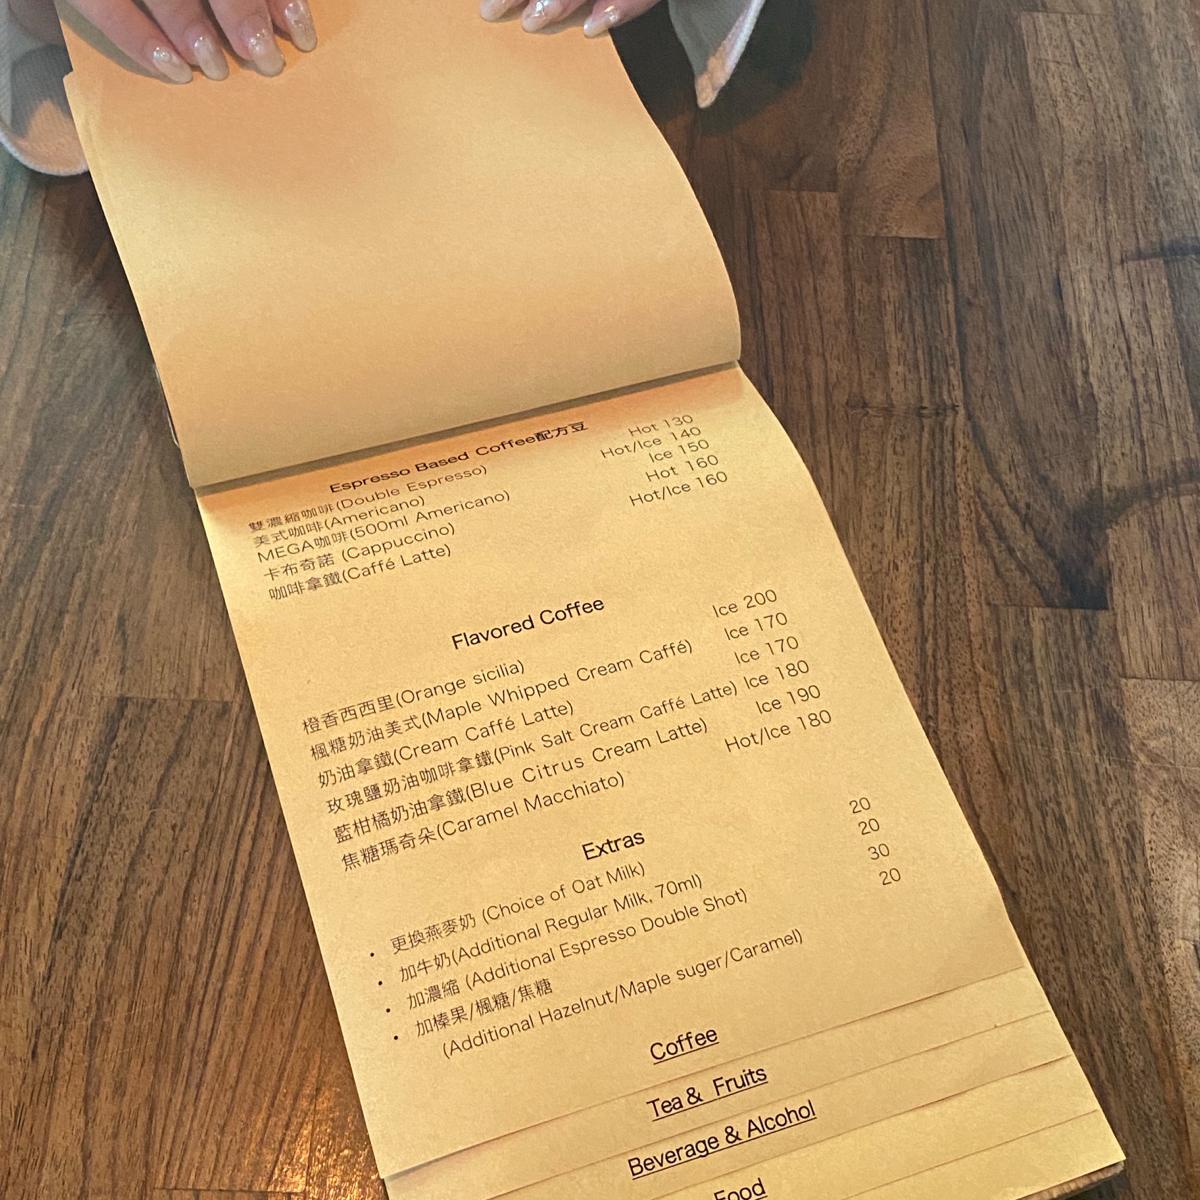 Espresso Based Coffee配方豆
雙濃縮咖啡(Double Espresso) Hot 130
美式咖啡(Americano) Hot/Ice 140
MEGA咖啡(500ml Americano) Ice 150
卡布奇諾 (Cappuccino) Hot 160
咖啡拿鐵(Caffé Latte) Hot/Ice 160
Flavored Coffee
橙香西西里(Orange sicilia) Ice 200
楓糖奶油美式(Maple Whipped Cream Caffé) Ice 170
奶油拿鐵(Cream Caffé Latte) Ice 170
玫瑰鹽奶油咖啡拿鐵(Pink Salt Cream Caffé Latte) Ice 180
藍柑橘奶油拿鐵(Blue Citrus Cream Latte) Ice 190
焦糖瑪奇朵(Caramel Macchiato) Hot/Ice 180
Extras
• 更換燕麥奶 (Choice of Oat Milk) 20
• 加牛奶(Additional Regular Milk, 70ml) 20
• 加濃縮 (Additional Espresso Double Shot) 30
• 加榛果/楓糖/焦糖 20
(Additional Hazelnut/Maple suger/Caramel)
Coffee
Tea & Fruits
Beverage & Alcohol
Food